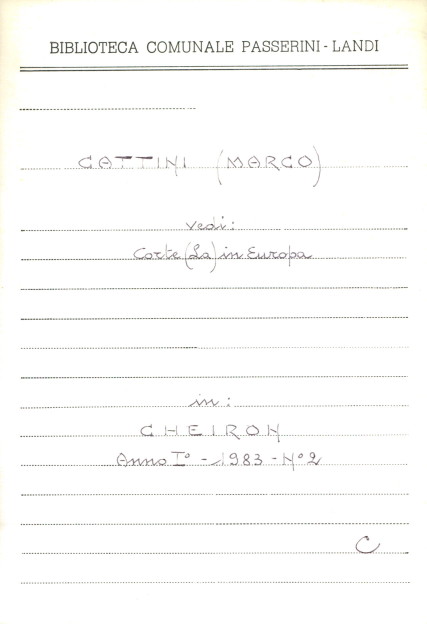 BIBLIOTECA COMUNALE PASSERINI - LANDI
CATTINI (MARCO)
vedi:
Corte (La) in Europa
in:
CHEIRON
Anno I° - 1983 - N° 2
C